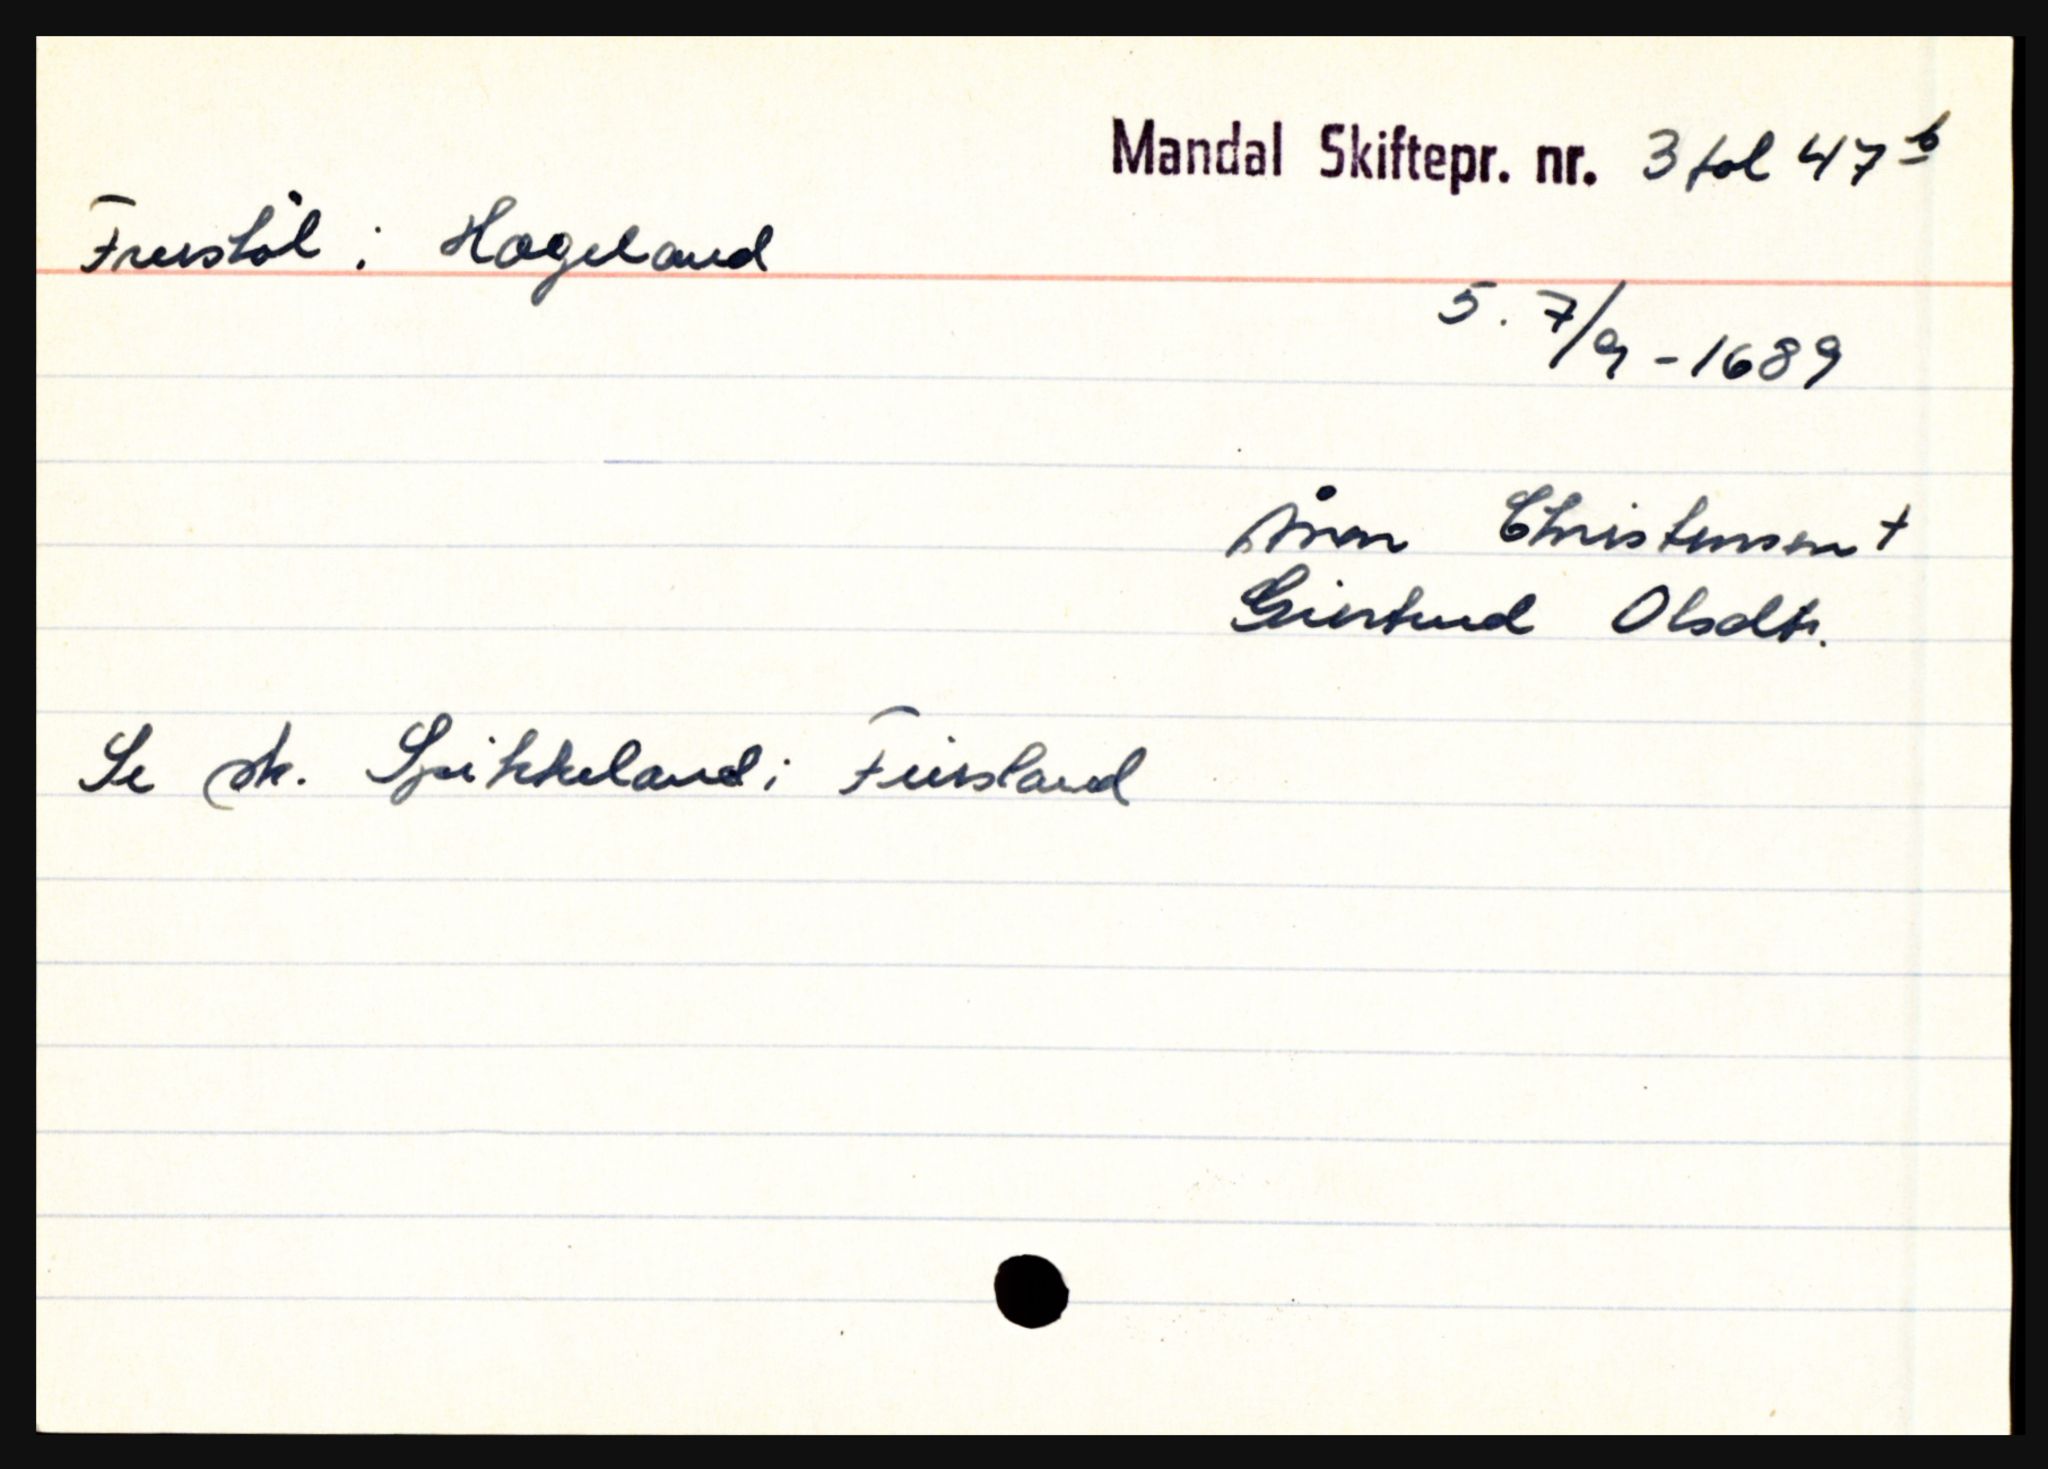 Mandal Skiftepr. nr. 3 fol 47 b
Frustøl i Hageland
5. 7/9 - 1689
Christensen +
Giertrud Olsdtr.
Se sk. Spikkeland i Finsland